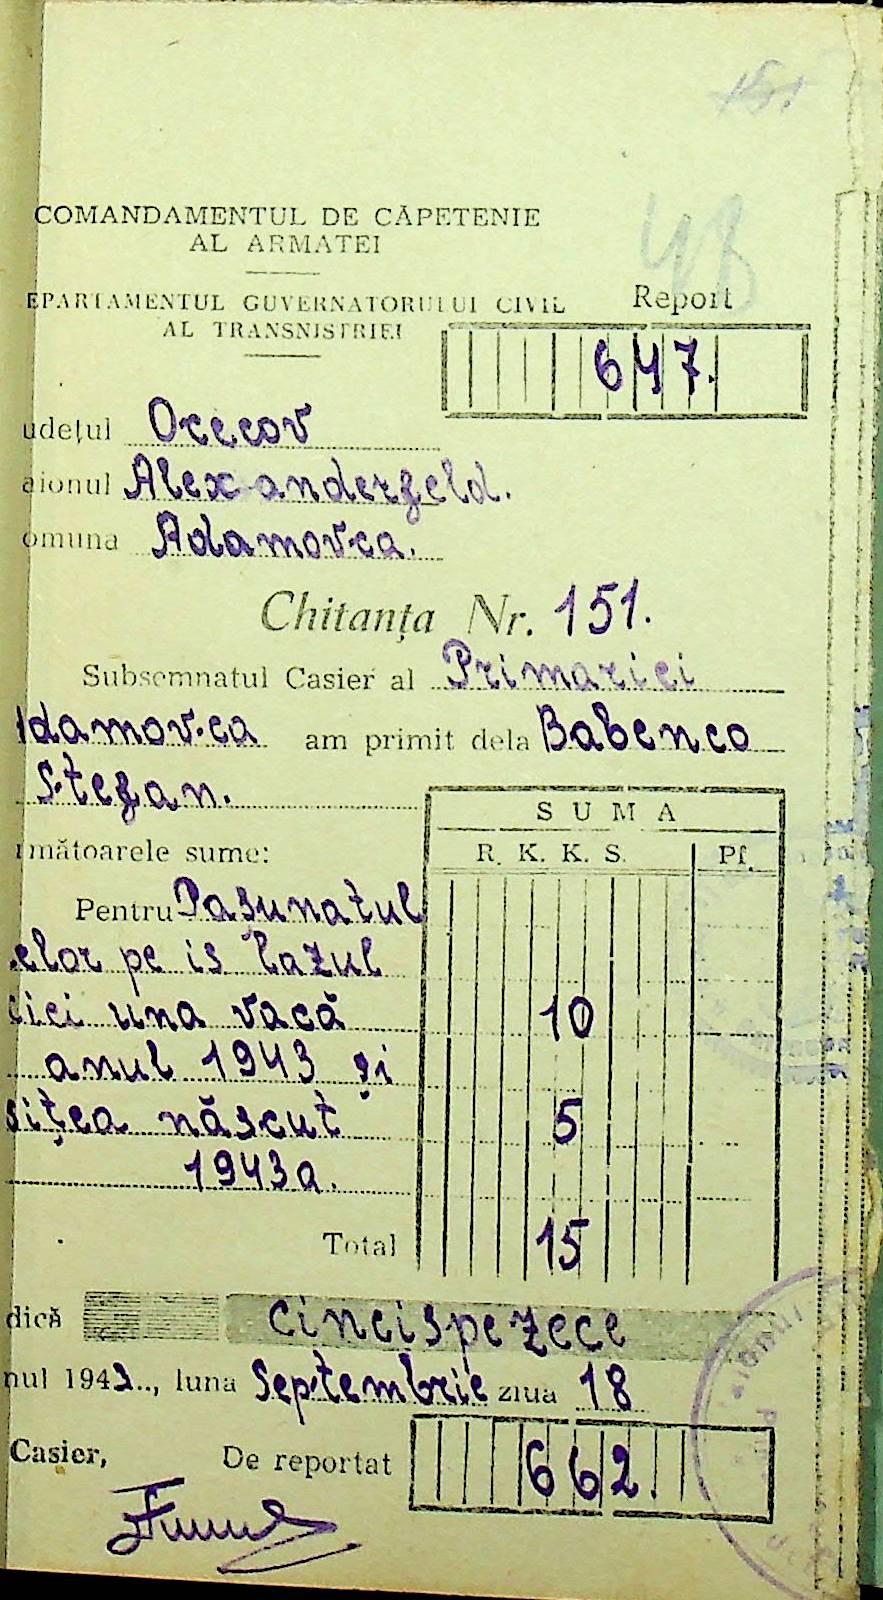 151
48
COMANDAMENTUL DE CĂPETENIE
AL ARMATEI
EPARTAMENTUL GUVERNATORULUI CIVIL
AL TRANSNISTRIEI
Report
647.
udețul Ocecov
aionul Alexanderfeld.
omuna Adamovca.
Chitanța Nr. 151.
Subsemnatul Casier al Primariei
damovca am primit dela Babenco
Stefan.
SUMA
rmătoarele sume:
R. K. K. S. Pf.
Pentru Pașunatul
elor pe islazul
ciei una vacă 10
anul 1943 și
sițea născut 5
1943 a.
Total 15
dică cincispezece
nul 1943.., luna Septembrie ziua 18
Casier, De reportat 662.